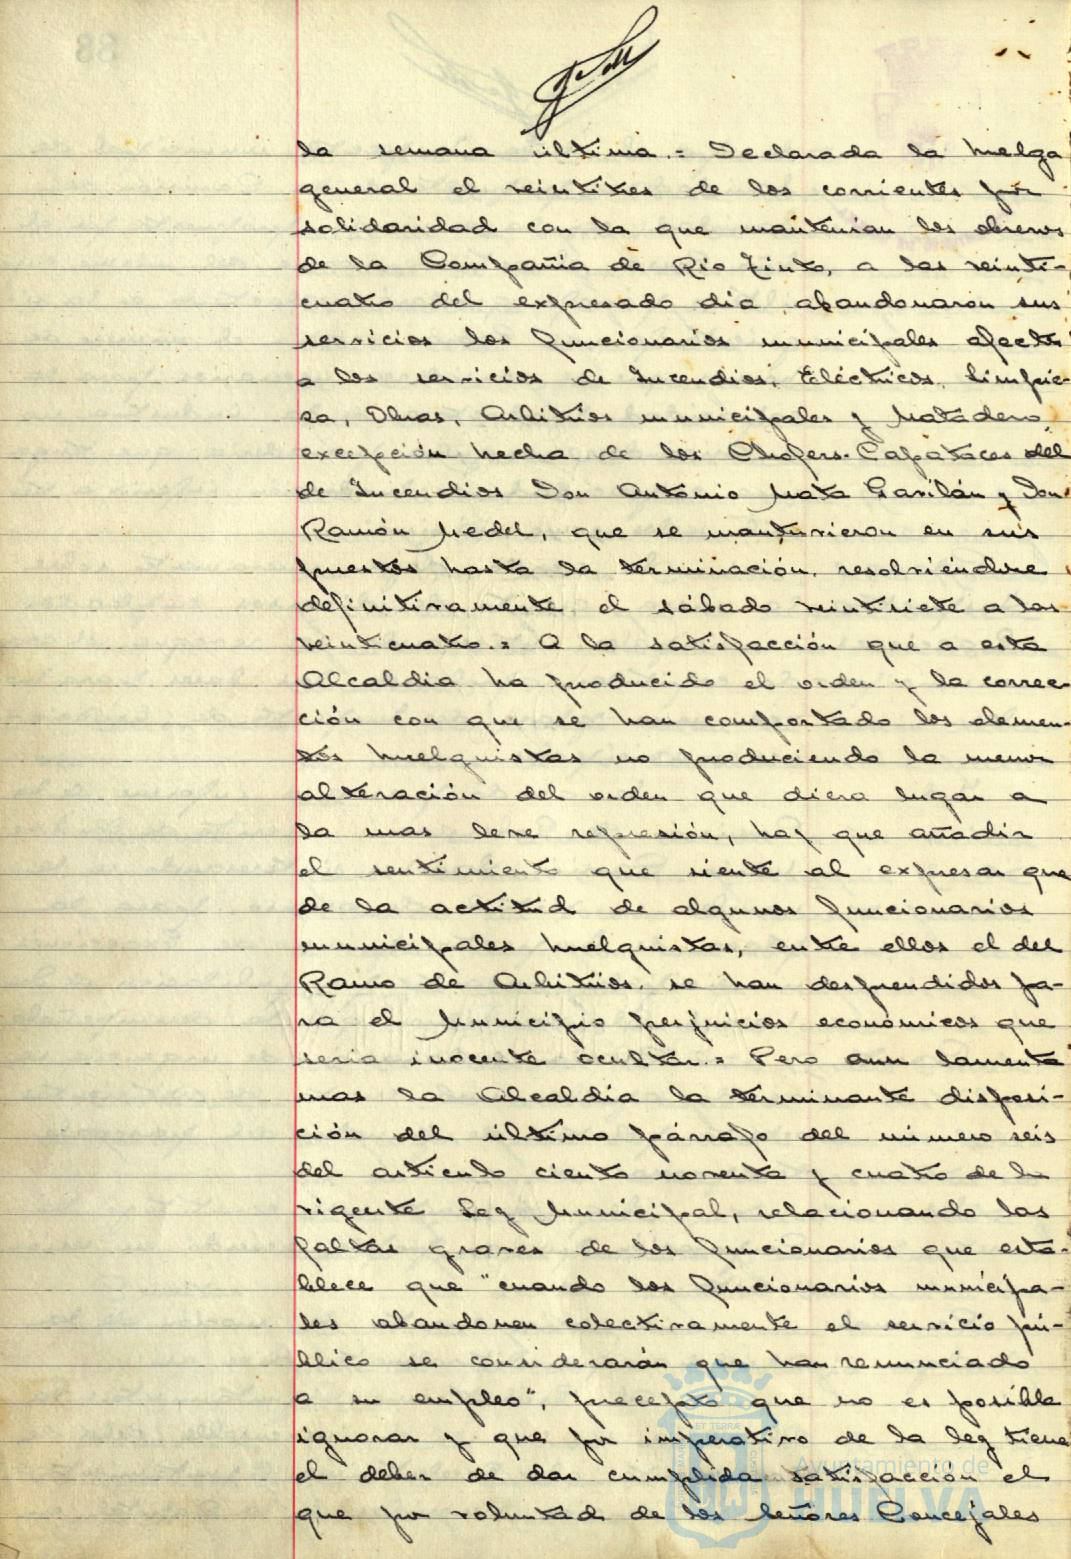 la semana última.= Declarada la huelga
general el veintitres de los corrientes por
solidaridad con la que mantenian los obreros
de la Compañia de Rio Tinto, a las veinti-
cuatro del expresado dia abandonaron sus
servicios los funcionarios municipales afectos
a los servicios de Incendios, Eléctricos, Limpie-
za, Obras, Arbitrios municipales y Matadero,
excepción hecha de los Chofers-Capataces del
de Incendios Don Antonio Mata Gavilán y Don
Ramón Medel, que se mantuvieron en sus
puestos hasta la terminación, resolviendose
definitivamente el sábado veintisiete a las
veinticuatro.= A la satisfacción que a esta
Alcaldia ha producido el orden y la correc-
ción con que se han comportado los elemen-
tos huelguistas no produciendo la menor
alteración del orden que diera lugar a
la mas leve represión, hay que añadir
el sentimiento que siente al expresar que
de la actitud de algunos funcionarios
municipales huelguistas, entre ellos el del
Ramo de Arbitrios, se han desprendidos pa-
ra el Municipio perjuicios económicos que
seria inocente ocultar.= Pero aun lamenta
mas la Alcaldia la terminante disposi-
ción del último párrafo del número seis
del articulo ciento noventa y cuatro de la
vigente Ley Municipal, relacionando las
faltas graves de los funcionarios que esta-
blece que "cuando los funcionarios municipa-
les abandonen colectivamente el servicio pú-
blico se considerarán que han renunciado
a su empleo", precepto que no es posible
ignorar y que por imperativo de la ley tiene
el deber de dar cumplida satisfacción el
que por voluntad de los Señores Concejales
Ayuntamiento de
HUELVA